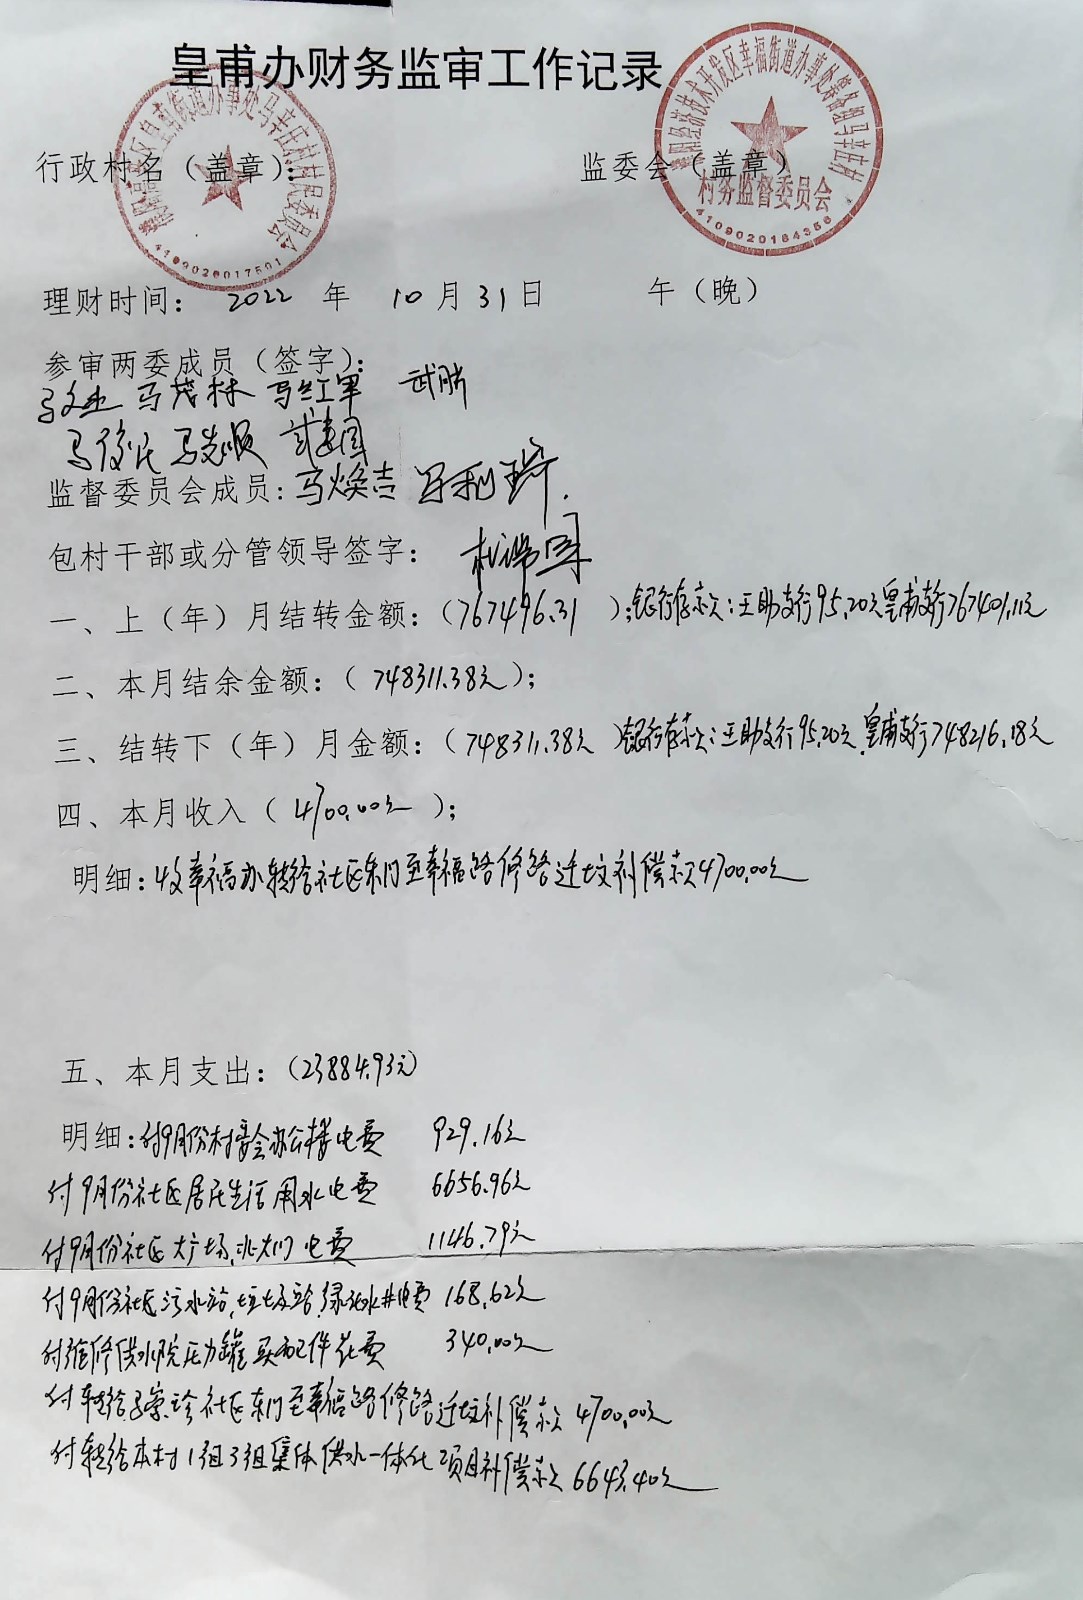 皇甫办财务监审工作记录
行政村名（盖章）：
监委会（盖章）
村务监督委员会
4109020184356
4109020017501
理财时间： 2022 年 10 月 31 日 午（晚）
参审两委成员（签字）：
马茂林 马红军
监督委员会成员：马焕吉
包村干部或分管领导签字：
一、上（年）月结转金额：（767496.31 ）；银行存款：王助支行95.20元皇甫支行767401.11元
二、本月结余金额：（ 748311.38元）；
三、结转下（年）月金额：（748311.38元 ）银行存款：王助支行95.20元.皇甫支行748216.18元
四、本月收入（ 4700.00元 ）；
明细：收幸福办转给社区东门至幸福路修路迁坟补偿款4700.00元
五、本月支出：（23884.93元）
明细：付9月份村委会办公楼电费 929.16元
付9月份社区居民生活用水电费 6656.96元
付9月份社区大广场.北大门电费 1146.79元
付9月份社区污水站.垃圾站.绿化水井电费 168.62元
付维修供水院压力罐买配件花费 340.00元
付转给 社区东门至幸福路修路迁坟补偿款 4700.00元
付转给本村1组3组集体供水一体化项目补偿款 6643.40元